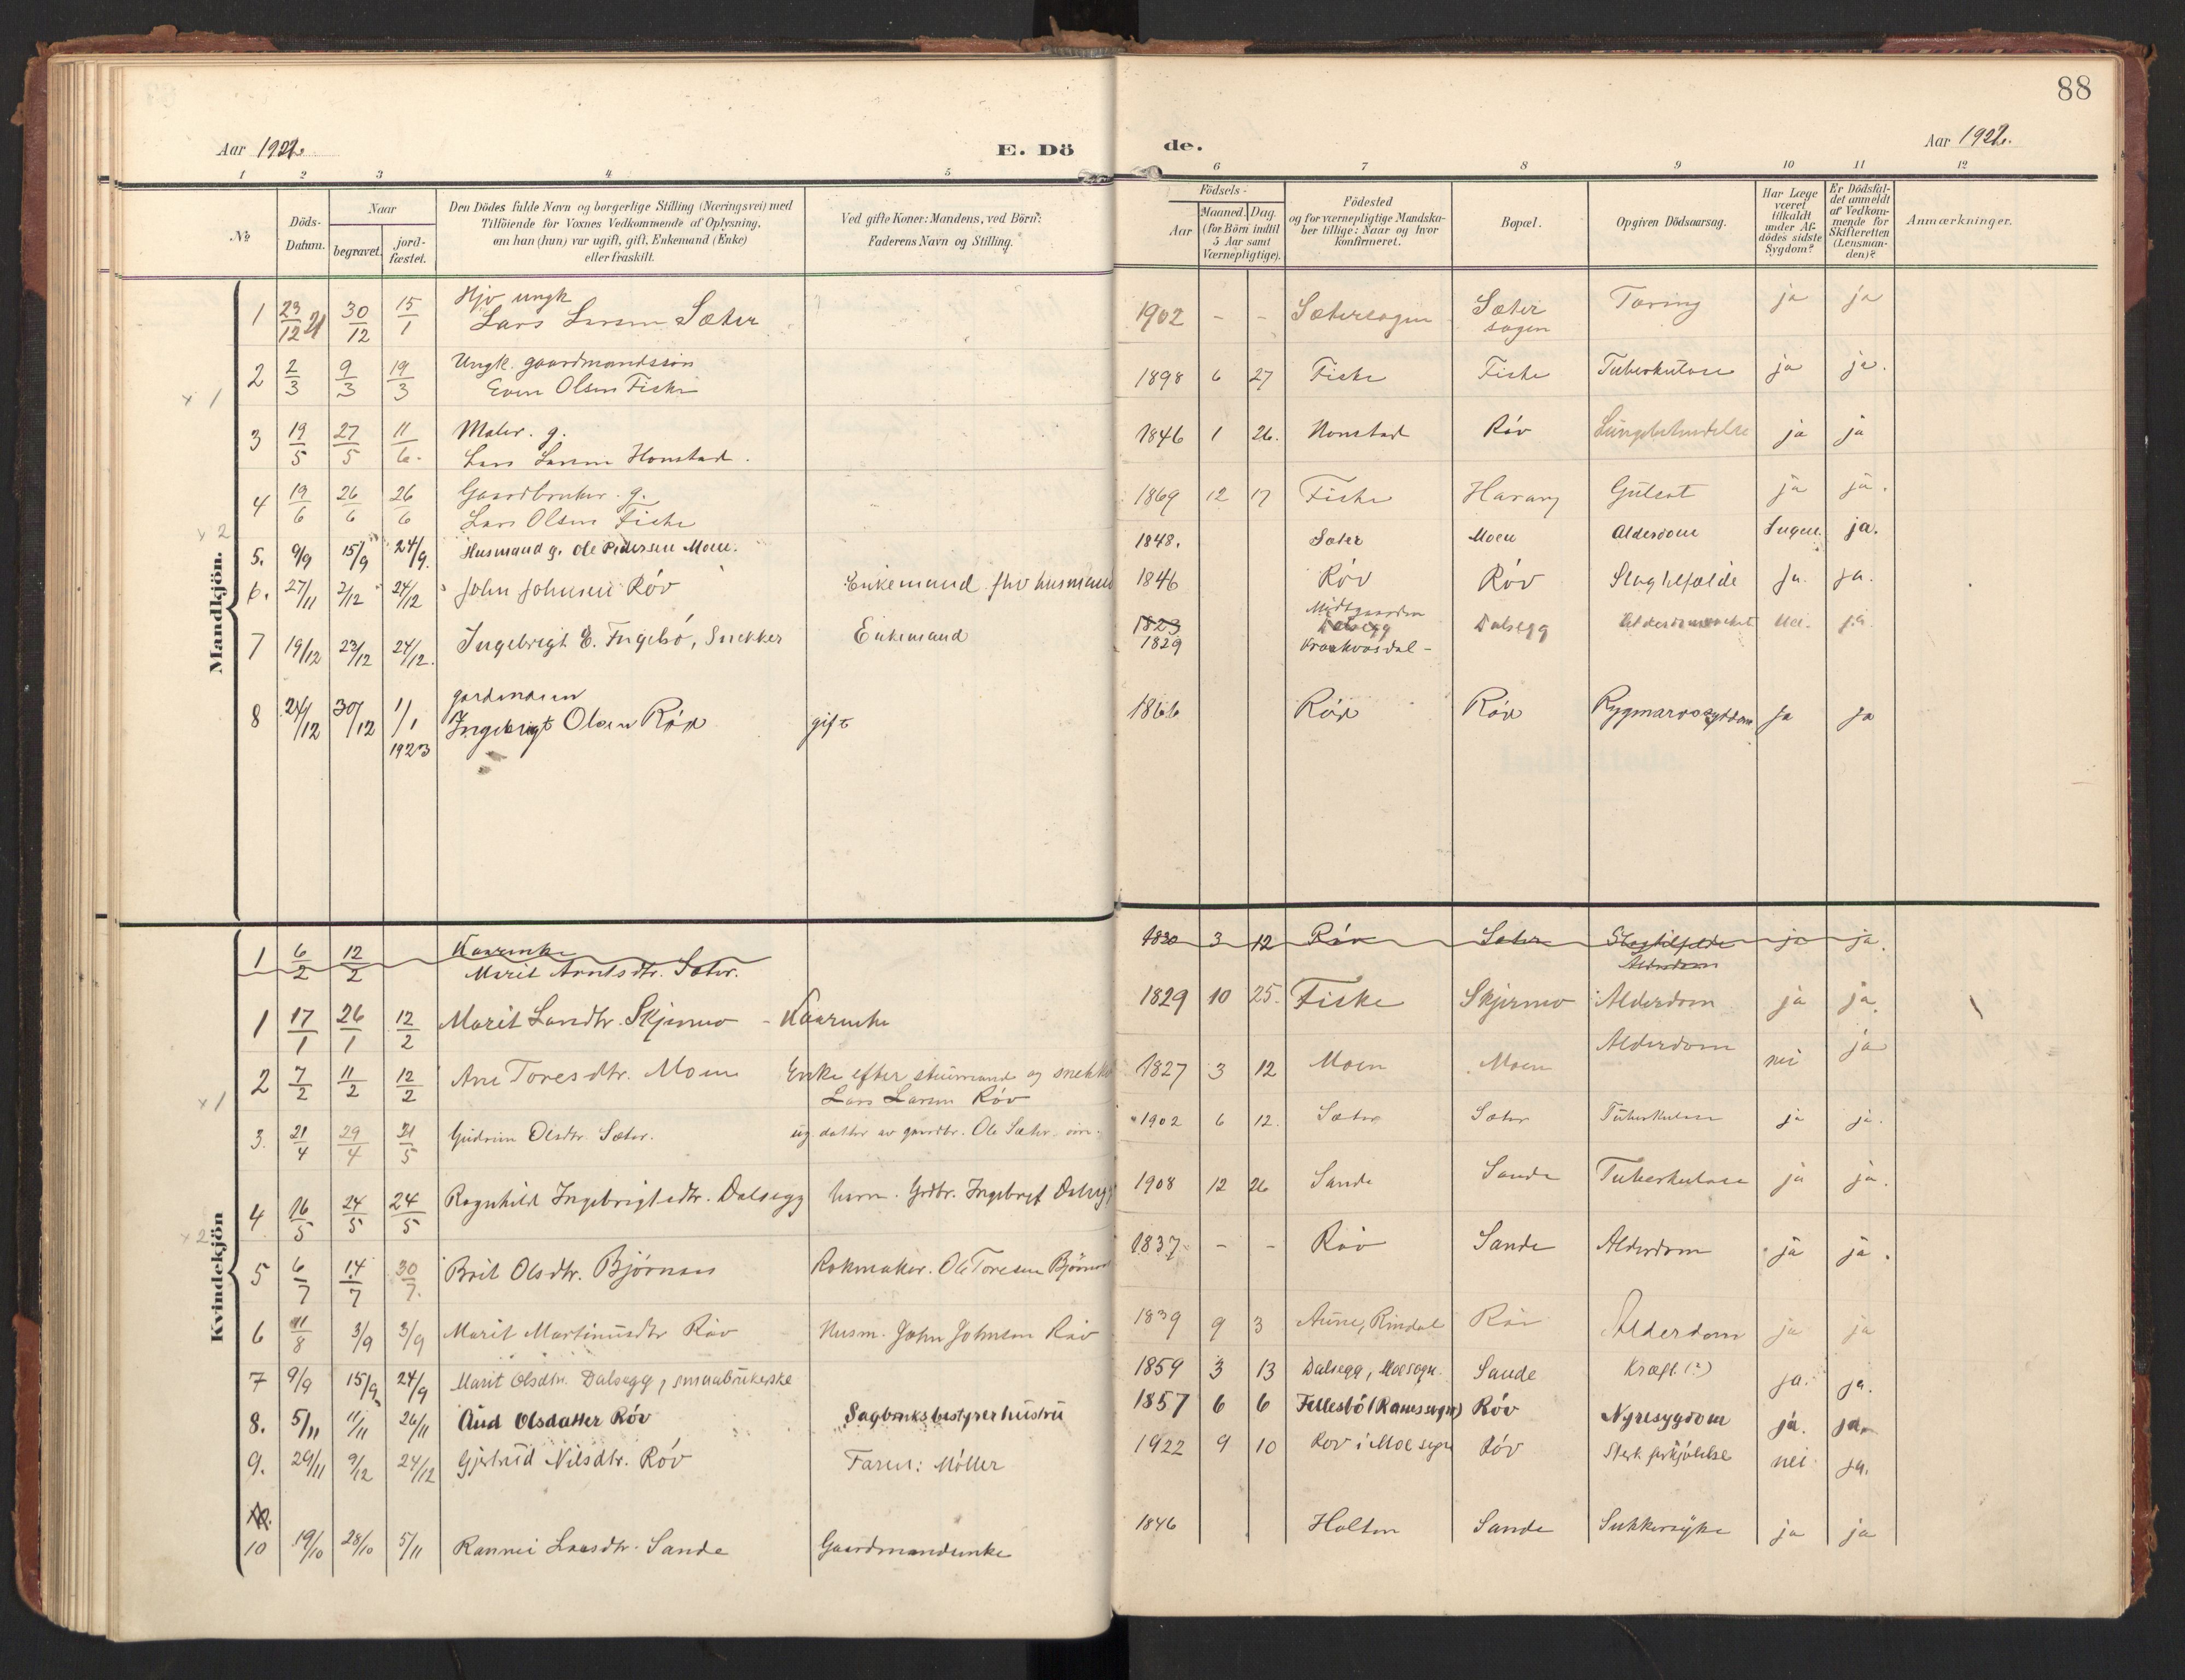 88
Aar 1922.
E. Dö
de.
Aar 1922.
1 2 3 4 5 6 7 8 9 10 11 12
No
Döds-
Datum.
Naar
begravet.
jord-
fæstet.
Den Dödes fulde Navn og borgerlige Stilling (Næringsvei) med
Tilföiende for Voxnes Vedkommende af Oplysning,
om han (hun) var ugift, gift, Enkemand (Enke)
eller fraskilt.
Ved gifte Koner: Mandens, ved Börn:
Faderens Navn og Stilling.
Födsels-
Aar
Maaned. Dag.
(for Börn indtil
5 Aar samt
Værnepligtige).
Födested
og for værnepligtige Mandska-
ber tillige: Naar og hvor
konfirmeret.
Bopæl.
Opgiven Dödsaarsag.
Har Læge
været
tilkaldt
under Af-
dödes sidste
Sygdom?
Er Dödsfal-
det anmeldt
af Vedkom-
mende for
Skifteretten
(Lensman-
den)?
Anmærkninger.
Mandkjön.
1 23/12 21 30/12 15/1 ungk
Lars Larsen Sæter 1902 - - Sætersagen Sæter
sagen Tæring ja ja
x 1
2 2/3 9/3 19/3 Ungk. gaardmandssön
Even Olsen Fiske 1898 6 27 Fiske Fiske Tuberkulose ja ja.
3 19/5 27/5 11/6. Maler. g.
Lars Larsen Honstad. 1846 1 26. Honstad Röv Lungebetændelse ja ja
x 2
4 19/6 26/6 26/6 Gaardbruker. g.
Lars Olsen Fiske 1869 12 17 Fiske Harang Gulsot ja ja.
5. 9/9 15/9 24/9. Husmand g. Ole Pedersen Moen. 1848. Sæter Moen Alderdom Ingen. ja.
6. 27/11 2/12 24/12 John Johnsen Röv Enkemand fhv husmand 1846 Röv Röv Slagtilfælde Ja. ja.
7 19/12 23/12 24/12. Ingebrigt E. Ingebö, Snekker Enkemand 1823
1829 Midtgaarden
Dalsegg
Dalsegg Nei. ja.
8 24/12 30/12 1/1
1923 gardmann
Ingebrigt Olsen Röv gift 1866 Röv Röv Rygmarvssygdom Ja Ja
Kvindekjön
1 6/2 12/2 Kaarenke
Marit Arntsdtr. Sæter. 1830 3 12 Röv Sæter Slagtilfælde
Alderdom ja ja.
1 17/1 26/1 12/2 Marit Larsdtr. Skjermo - Kaarenke 1829 10 25. Fiske Skjermo Alderdom ja ja.
x 1
2 7/2 11/2 12/2 Ane Toresdtr. Moen Enke efter stuemand og snekker
Lars Larsen Röv 1827 3 12 Moen Moen Alderdom nei ja
3. 21/4 29/4 21/5 Gudrun Olsdtr. Sæter. ug datter av gaardbr. Ole Sæter 1902 6 12. Sæter Sæter Tuberkulose ja ja.
x 2
4 16/5 24/5 24/5 Ragnhild Ingebrigtsdtr. Dalsegg barn. Grdbr. Ingebrigt Dalsegg 1908 12 26 Sande Sande Tuberkulose ja ja.
5 6/7 14/7 30/7. Brit Olsdtr. Björnaas Rokmaker. Ole Toresen Björnaas 1837 - - Röv Sande Alderdom ja ja.
6 /8 3/9 3/9 Marit Martinusdtr Röv Husm. John Johnsen Röv 1839 9 3 Aune, Rindal Röv Alderdom ja ja
7 9/9 15/9 24/9 Marit Olsdtr. Dalsegg, smaabrukerske 1859 3 13 Dalsegg, Moe sogn. Sande Kræft (?) ja. ja.
8. 5/11 11/11 26/11 Aud Olsdatter Röv Sagbruksbestyrer hustru 1857 6 6 Fellesbö (Ranes sogn) Röv Nyresygdom ja. ja.
9. 29/11 9/12 24/12 Gjertrud Nilsdtr. Röv Faren: Möller 1922 9 10 Röv i Moe sogn Röv Sterk forkjölelse nei ja.
10 19/10 28/10 5/11 Rannei Larsdtr. Sande Gaardmandsenke 1846 Holten Sande Sukkersyke ja ja